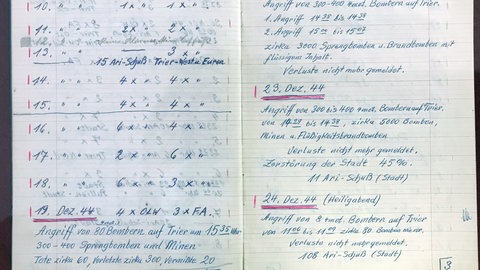 10. " " 1 × " 1 × "
11. " " 2 × " 2 × "
12.
13. " " 3 × "
15 Ari-Schuß Trier-West u. Euren
14. " " 4 × " 4 × "
15. " " 4 × " 4 × "
16. " " 6 × " 4 × "
17. " " 2 × " 6 × "
18. " " 6 × " 3 × "
19. Dez. 44 4 × ÖLW 3 × F.A.
Angriff von 80 Bombern auf Trier um 15 35 Uhr
300-400 Sprengbomben und Minen
Tote zirka 60, Verletzte zirka 300, Vermißte 20
Angriff von 300-400 4mot. Bombern auf Trier.
1. Angriff 14 35 bis 14 58
2. Angriff 15 00 bis 15 15
zirka 3000 Sprengbomben u. Brandbomben mit
flüssigem Inhalt.
Verluste nicht mehr gemeldet.
23. Dez. 44
Angriff von 300 bis 400 4mot. Bombern auf Trier.
von 14 28 bis 14 58, zirka 5000 Bomben,
Minen u. Flüßigkeitsbrandbomben
Verluste nicht mehr gemeldet,
Zerstörung der Stadt 45%.
11 Ari-Schuß (Stadt)
24. Dez. 44 (Heiligabend)
Angriff von 8 4mot. Bombern auf Trier
von 11 06 bis 11 09 zirka 80 Bomben
Verluste nicht mehr gemeldet.
108 Ari-Schuß (Stadt)
3